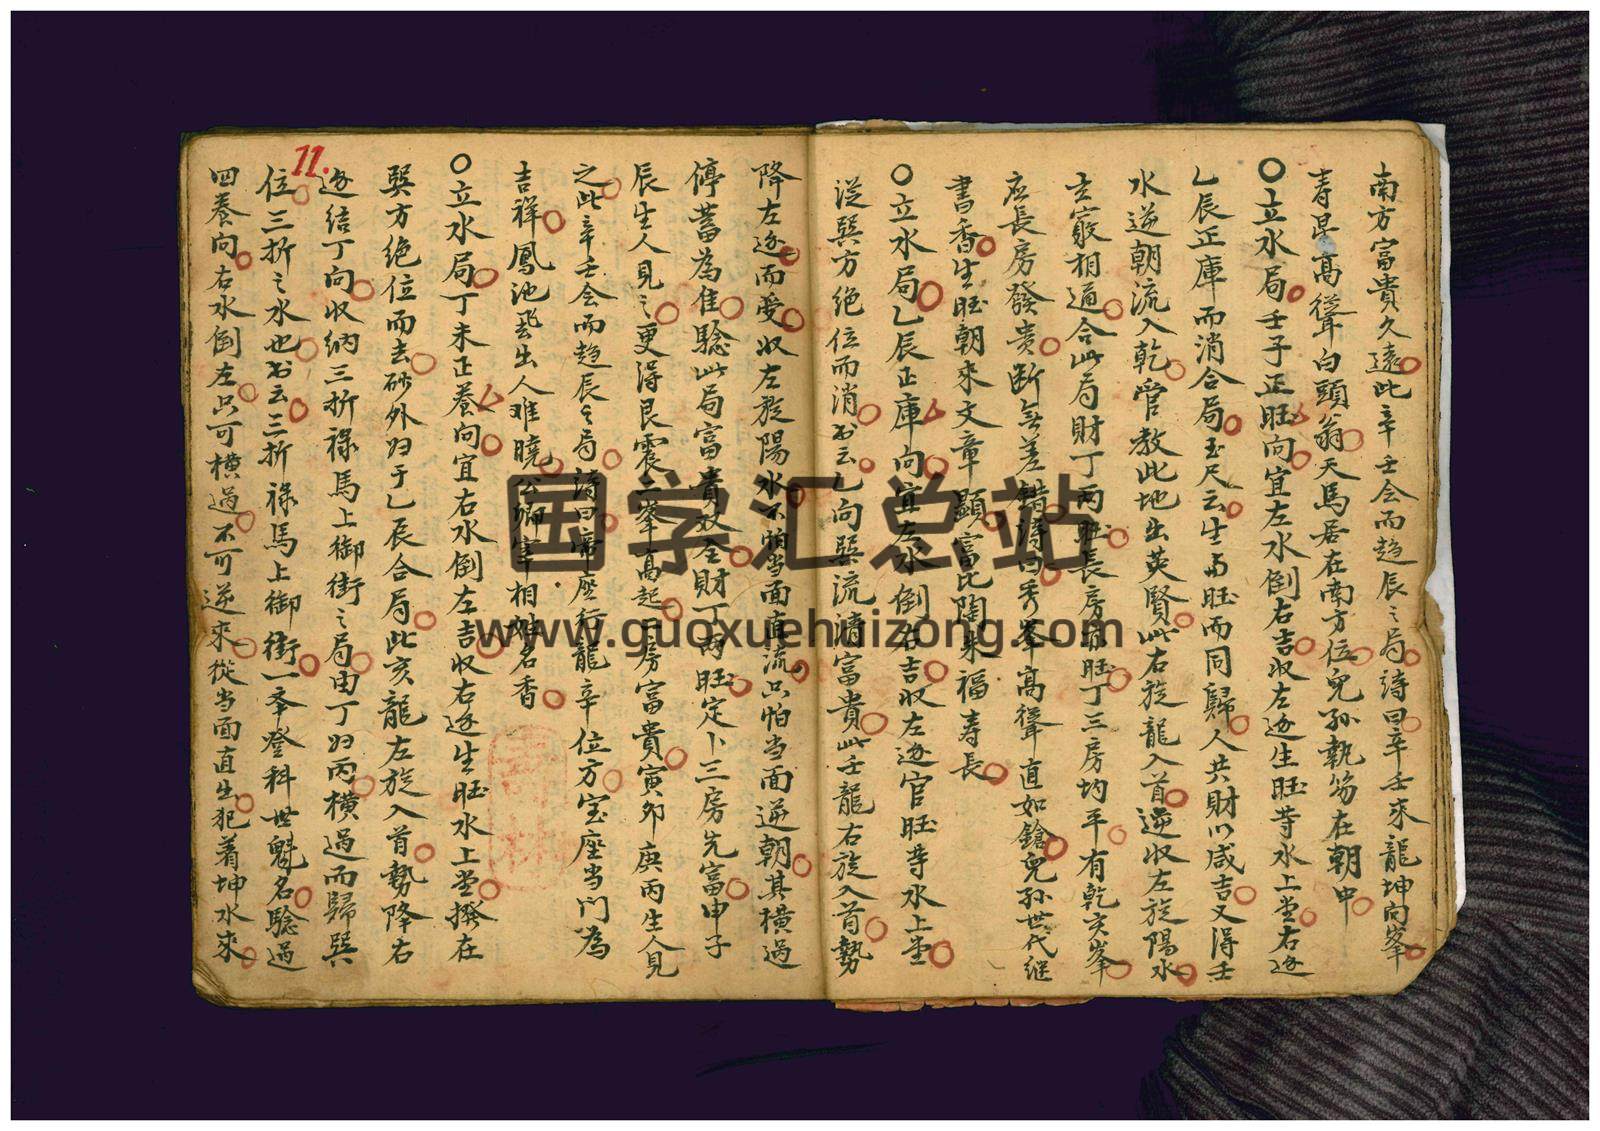 南方富貴久遠此辛壬会而趋辰之局詩曰辛壬來龍坤向峯
寿星高聳白頭翁天馬居在南方位兒孫執笏在朝中
〇立水局壬子正旺向宜左水倒右吉収左逆生旺等水上堂右逆
乙辰正庫而消合局玉尺云生与旺而同歸人共財以咸吉又得壬
水逆朝流入乾管教此地出英賢此右旋龍入首逆収左旋陽水
玄竅相通合此局財丁兩旺長房官旺丁三房均平有乾亥峯
应長房發貴断無差錯詩曰秀峯高聳直如鎗兒孫世代継
書香生旺朝來文章顕富比陶朱福寿長
〇立水局乙辰正庫向宜左水倒右吉収左逆官旺等水上堂
從巽方绝位而消书云乙向巽流清富貴此壬龍右旋入首勢
降左逆而受収左旋陽水不怕当面直流只怕当面逆朝其横過
停蓄為佳騐此局富貴双全財丁兩旺定卜三房先富申子
辰生人見之更得艮震二峯高起二房富貴寅卯庚丙生人見
之此辛壬会而趋辰之局詩曰帝座行龍辛位方宝座当門為
吉祥鳳池飛出人难曉公卿宰相姓名香
〇立水局丁未正養向宜右水倒左吉収右逆生旺水上堂撥在
巽方绝位而去砂外归于乙辰合局此亥龍左旋入首勢降右
逆结丁向収納三折禄馬上御街之局由丁归丙横過而歸巽
位三折之水也书云三折禄馬上御街一举登科世魁名騐過
四養向右水倒左只可横過不可逆來從当面直生犯着坤水來
11.
国学汇总站
www.guoxuehuizong.com